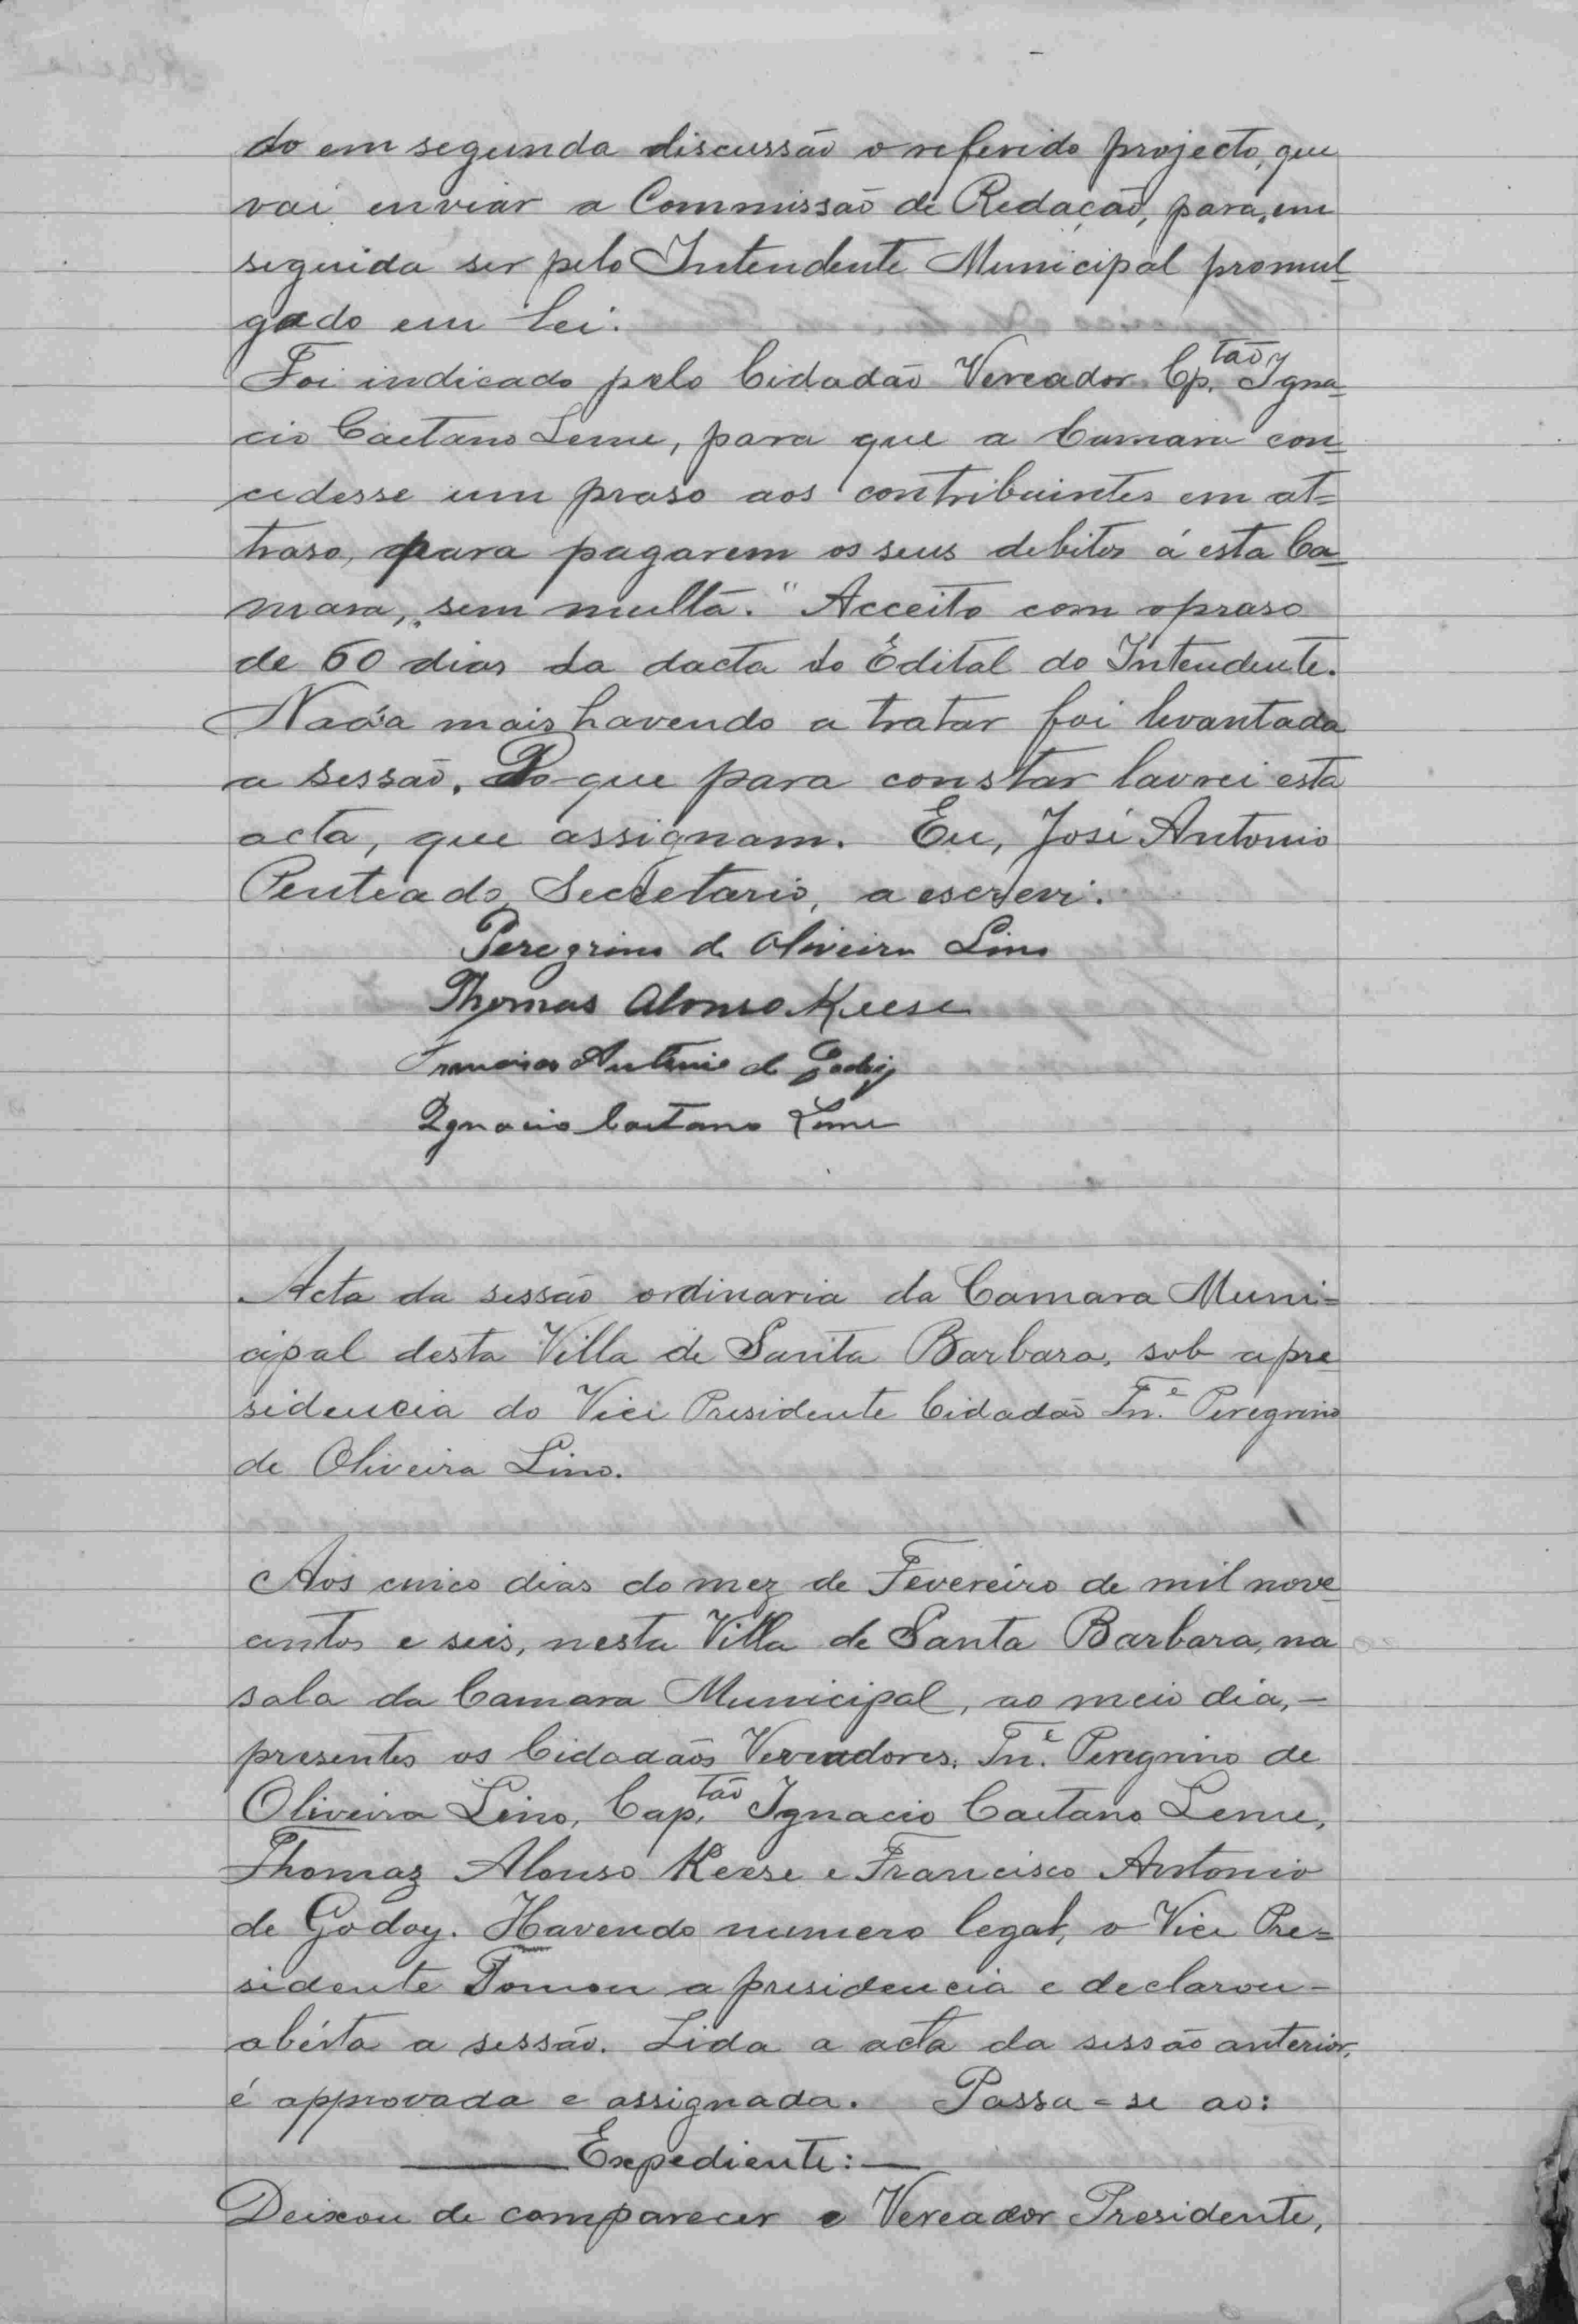 do em segunda discussão o referido projecto, que
vai enviar a Commissão de Redação, para, em
seguida ser pelo Intendente Municipal promul-
gado em lei.
Foi indicado pelo Cidadão Vereador Cp.tão Igna-
cio Caetano Leme, para que a Camara con-
cedesse um praso aos contribuintes em at=
traso, para pagarem os seus debitos á esta Ca-
mara, "sem multa." Acceito com o praso
de 60 dias da dacta do Edital do Intendente.
Nada mais havendo a tratar foi levantada
a sessão. Do que para constar lavrei esta
acta, que assignam. Eu, José Antonio
Penteado, Secretario, a escrevi.
Peregrino de Oliveira Lino
Thomas Alonso Keese
Francisco Antonio de Godoy
Ignacio Caetano Leme
Acta da sessão ordinaria da Camara Muni=
cipal desta Villa de Santa Barbara, sob a pre
sidencia do Vice Presidente Cidadão Tn.e Peregrino
de Oliveira Lino.
Aos cinco dias do mez de Fevereiro de mil nove
centos e seis, nesta Villa de Santa Barbara, na
sala da Camara Municipal, ao meio dia, -
presentes os Cidadãos Vereadores: Tn.e Peregrino de
Oliveira Lino, Cap.tão Ignacio Caetano Leme,
Thomaz Alonso Keese e Francisco Antonio
de Godoy. Havendo numero legal, o Vice Pre=
sidente Tomou a presidencia e declarou -
abérta a sessão. Lida a acta da sessão anterior,
é approvada e assignada. Passa=se ao:
Expediente: -
Deixou de comparecer o Vereador Presidente,